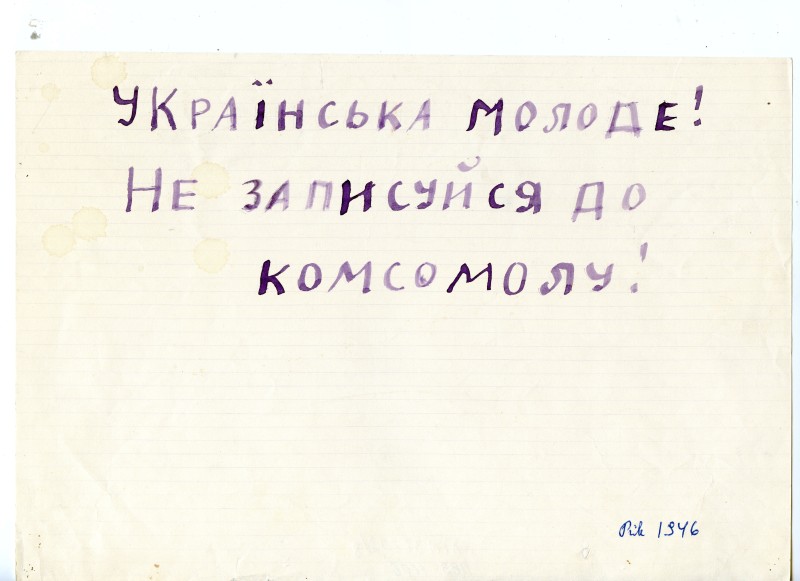 Українська молоде!
Не записуйся до
комсомолу!
Рік 1946